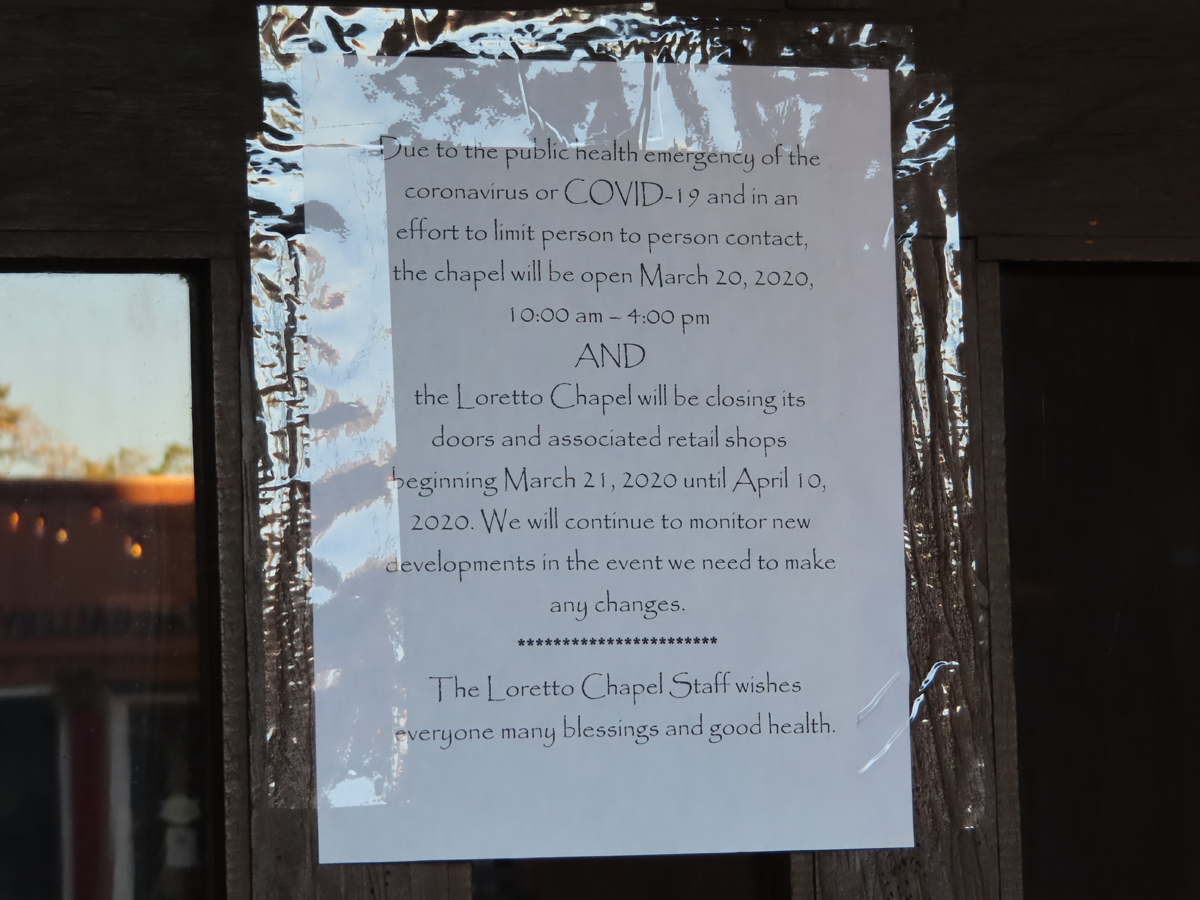 Due to the public health emergency of the
coronavirus or COVID-19 and in an
effort to limit person to person contact,
the chapel will be open March 20, 2020,
10:00 am – 4:00 pm
AND
the Loretto Chapel will be closing its
doors and associated retail shops
beginning March 21, 2020 until April 10,
2020. We will continue to monitor new
developments in the event we need to make
any changes.
**********************
The Loretto Chapel Staff wishes
everyone many blessings and good health.